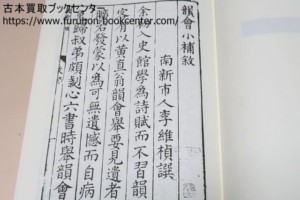 古本買取ブックセンタ
韻會小補敘
南新市人李維楨譔
余初入史館學為詩賦而不習韻
客有以黄直翁韻會舉要見遺者
若發蒙以為可無遺憾而自病
歸叔弟頗心六書時舉韻會
www.furuhon-bookcenter.com